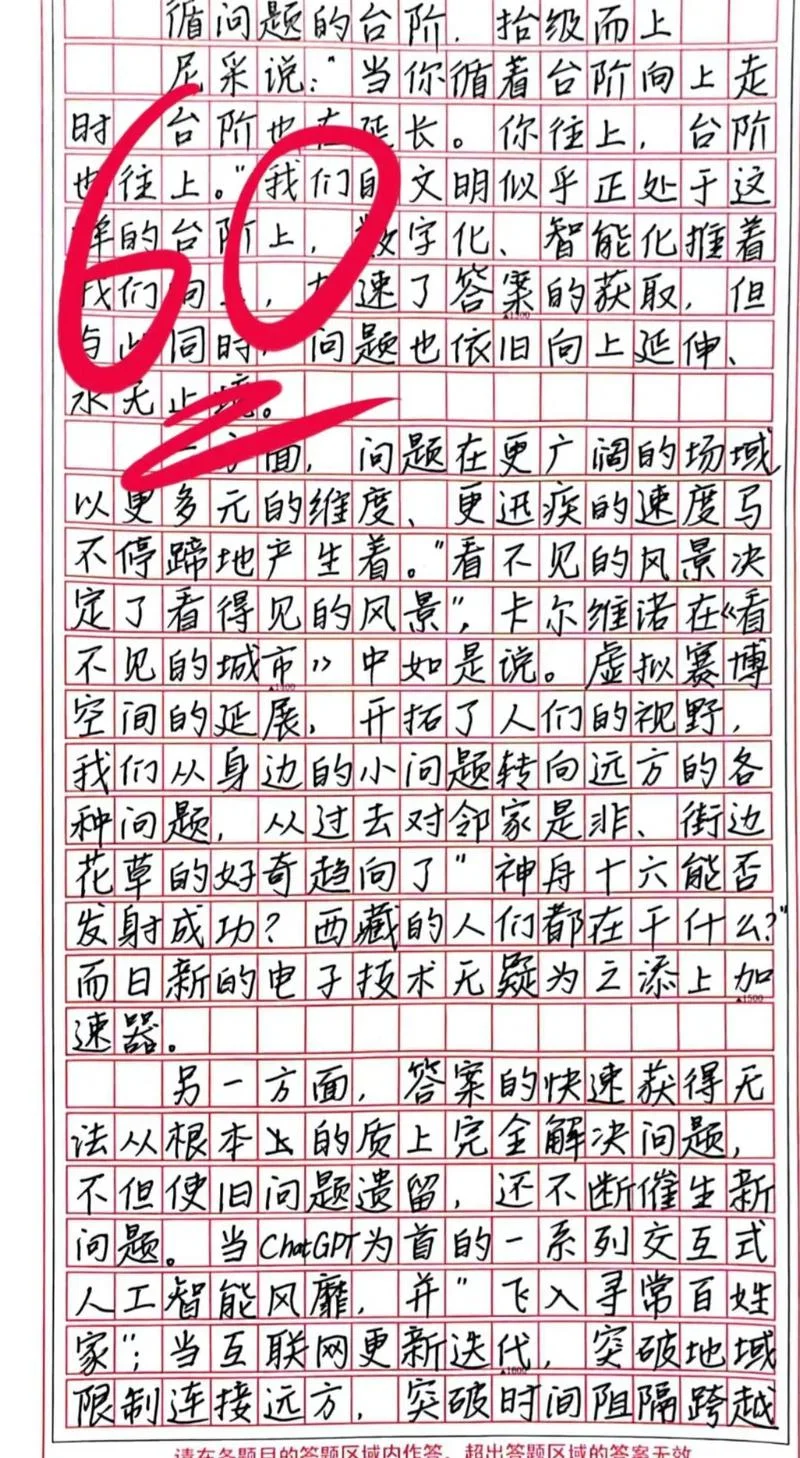 循问题的台阶，抬级而上
尼采说："当你循着台阶向上走
时 台阶也在延长。你往上，台阶
也往上。"我们的文明似乎正处于这
样的台阶上，数字化、智能化推着
我们向上，加速了答案的获取，但
与此同时，问题也依旧向上延伸、
永无止境。
一方面，问题在更广阔的场域
以更多元的维度、更迅疾的速度马
不停蹄地产生着。"看不见的风景决
定了看得见的风景"，卡尔维诺在《看
不见的城市》中如是说。虚拟赛博
空间的延展，开拓了人们的视野，
我们从身边的小问题转向远方的各
种问题，从过去对邻家是非、街边
花草的好奇趋向了"神舟十六能否
发射成功？西藏的人们都在干什么？"
而日新的电子技术无疑为之添上加
速器。
另一方面，答案的快速获得无
法从根本的质上完全解决问题，
不但使旧问题遗留，还不断催生新
问题。当ChatGPT为首的一系列交互式
人工智能风靡，并"飞入寻常百姓
家"；当互联网更新迭代，突破地域
限制连接远方，突破时间阻隔跨越
请在各题目的答题区域内作答，超出答题区域的答案无效
60